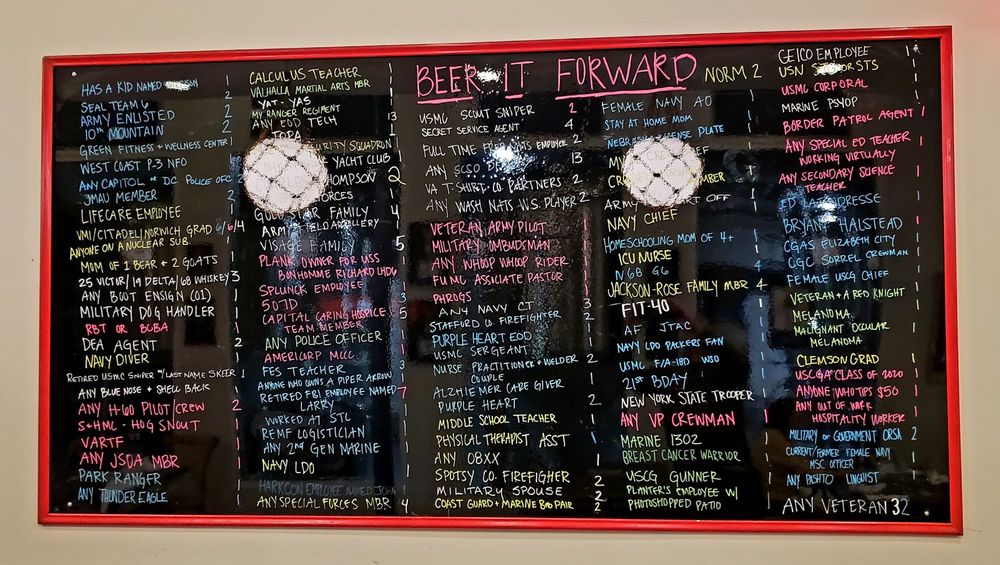 BEER IT FORWARD
HAS A KID NAMED 1
SEAL TEAM 6 2
ARMY ENLISTED 2
10th MOUNTAIN 2
GREEN FITNESS + WELLNESS CENTER 1
WEST COAST P-3 NFO
ANY CAPITOL OR DC POLICE OFC 2
JMAU MEMBER 2
LIFECARE EMPLOYEE
VMI/CITADEL/NORWICH GRAD 6/6/4
ANYONE ON A NUCLEAR SUB
MOM OF 1 BEAR + 2 GOATS
25 VICTOR/19 DELTA/68 WHISKEY 3
ANY BOOT ENSIGN (O1)
MILITARY DOG HANDLER
RBT OR BCBA
DEA AGENT 2
NAVY DIVER
RETIRED USMC SNIPER W/ LAST NAME SKEER 1
ANY BLUE NOSE + SHELL BACK
ANY H-60 PILOT/CREW 2
S+HML - HOG SNOUT
VARTF
ANY JSOA MBR
PARK RANGER
ANY THUNDER EAGLE
CALCULUS TEACHER
VALHALLA MARTIAL ARTS MBR
YAT-YAS
MY RANGER REGIMENT
ANY EOD TECH
TOPA
SQUADRON
YACHT CLUB
THOMPSON 2
FORCES
FAMILY
ARMY FIELD ARTILLERY
VISAGE FAMILY 5
PLANK OWNER FOR USS
BONHOMME RICHARD LHD6
SPLUNK EMPLOYEE
507D
CAPITAL CARING HOSPICE
TEAM MEMBER
ANY POLICE OFFICER
AMERICORP MCCC
FES TEACHER
ANYONE WHO OWNS A PIPER ARROW
RETIRED FBI EMPLOYEE NAMED 7
LARRY
WORKED AT STL
REMF LOGISTICIAN
ANY 2nd GEN MARINE
NAVY LDO
HARKCON EMPLOYEE NAMED JOHN
ANY SPECIAL FORCES MBR 4
USMC SCOUT SNIPER 2
SECRET SERVICE AGENT 4
FULL TIME EMPLOYEE 2
ANY SCSO 13
VA T-SHIRT CO PARTNERS 2
ANY WASH NATS W.S. PLAYER 2
VETERAN, ARMY PILOT
MILITARY OMBUDSMAN
ANY WHOOP WHOOP RIDER
FUMU ASSOCIATE PASTOR
PHROGS
ANY NAVY CT 3
STAFFORD CO FIREFIGHTER 2
PURPLE HEART EOD
USMC SERGEANT
NURSE PRACTITIONER + WELDER 2
COUPLE
ALZHIEMER CARE GIVER
PURPLE HEART 2
MIDDLE SCHOOL TEACHER
PHYSICAL THERAPIST ASST
ANY 08XX
SPOTSY CO. FIREFIGHER
MILITARY SPOUSE 2
COAST GUARD + MARINE BRO PAIR 2
NORM 2
FEMALE NAVY AO
STAY AT HOME MOM
PLATE
ARMY OFF
NAVY CHIEF
HOMESCHOOLING MOM OF 4+
ICU NURSE
NGB G6 4
JACKSON-ROSE FAMILY MBR 4
FIT-40
AF JTAC
NAVY LDO PACKERS FAN
USMC F/A-18D WSO
21ST BDAY
NEW YORK STATE TROOPER
ANY VP CREWMAN
MARINE 1302
BREAST CANCER WARRIOR
USCG GUNNER
PLANTER'S EMPLOYEE W/
PHOTOSHOPPED PATIO
GEICO EMPLOYEE
USN
USMC CORPORAL
MARINE PSYOP
BORDER PATROL AGENT 1
ANY SPECIAL ED TEACHER
WORKING VIRTUALLY
ANY SECONDARY SCIENCE
TEACHER
ED
BRYANT HALSTEAD
CGAS ELIZABETH CITY
CGC SORREL CREWMAN
FEMALE USCG CHIEF
VETERAN + A RED KNIGHT
MELANOMA
MALIGNANT OCCULAR
MELANOMA
CLEMSON GRAD
USCGA CLASS OF 2020
ANYONE WHO TIPS $50
ANY OUT OF WORK
HOSPITALITY WORKER
MILITARY OR GOVERNMENT ORSA 2
CURRENT/FORMER FEMALE NAVY
MSC OFFICER
ANY PASHTO LINGUIST
ANY VETERAN 32